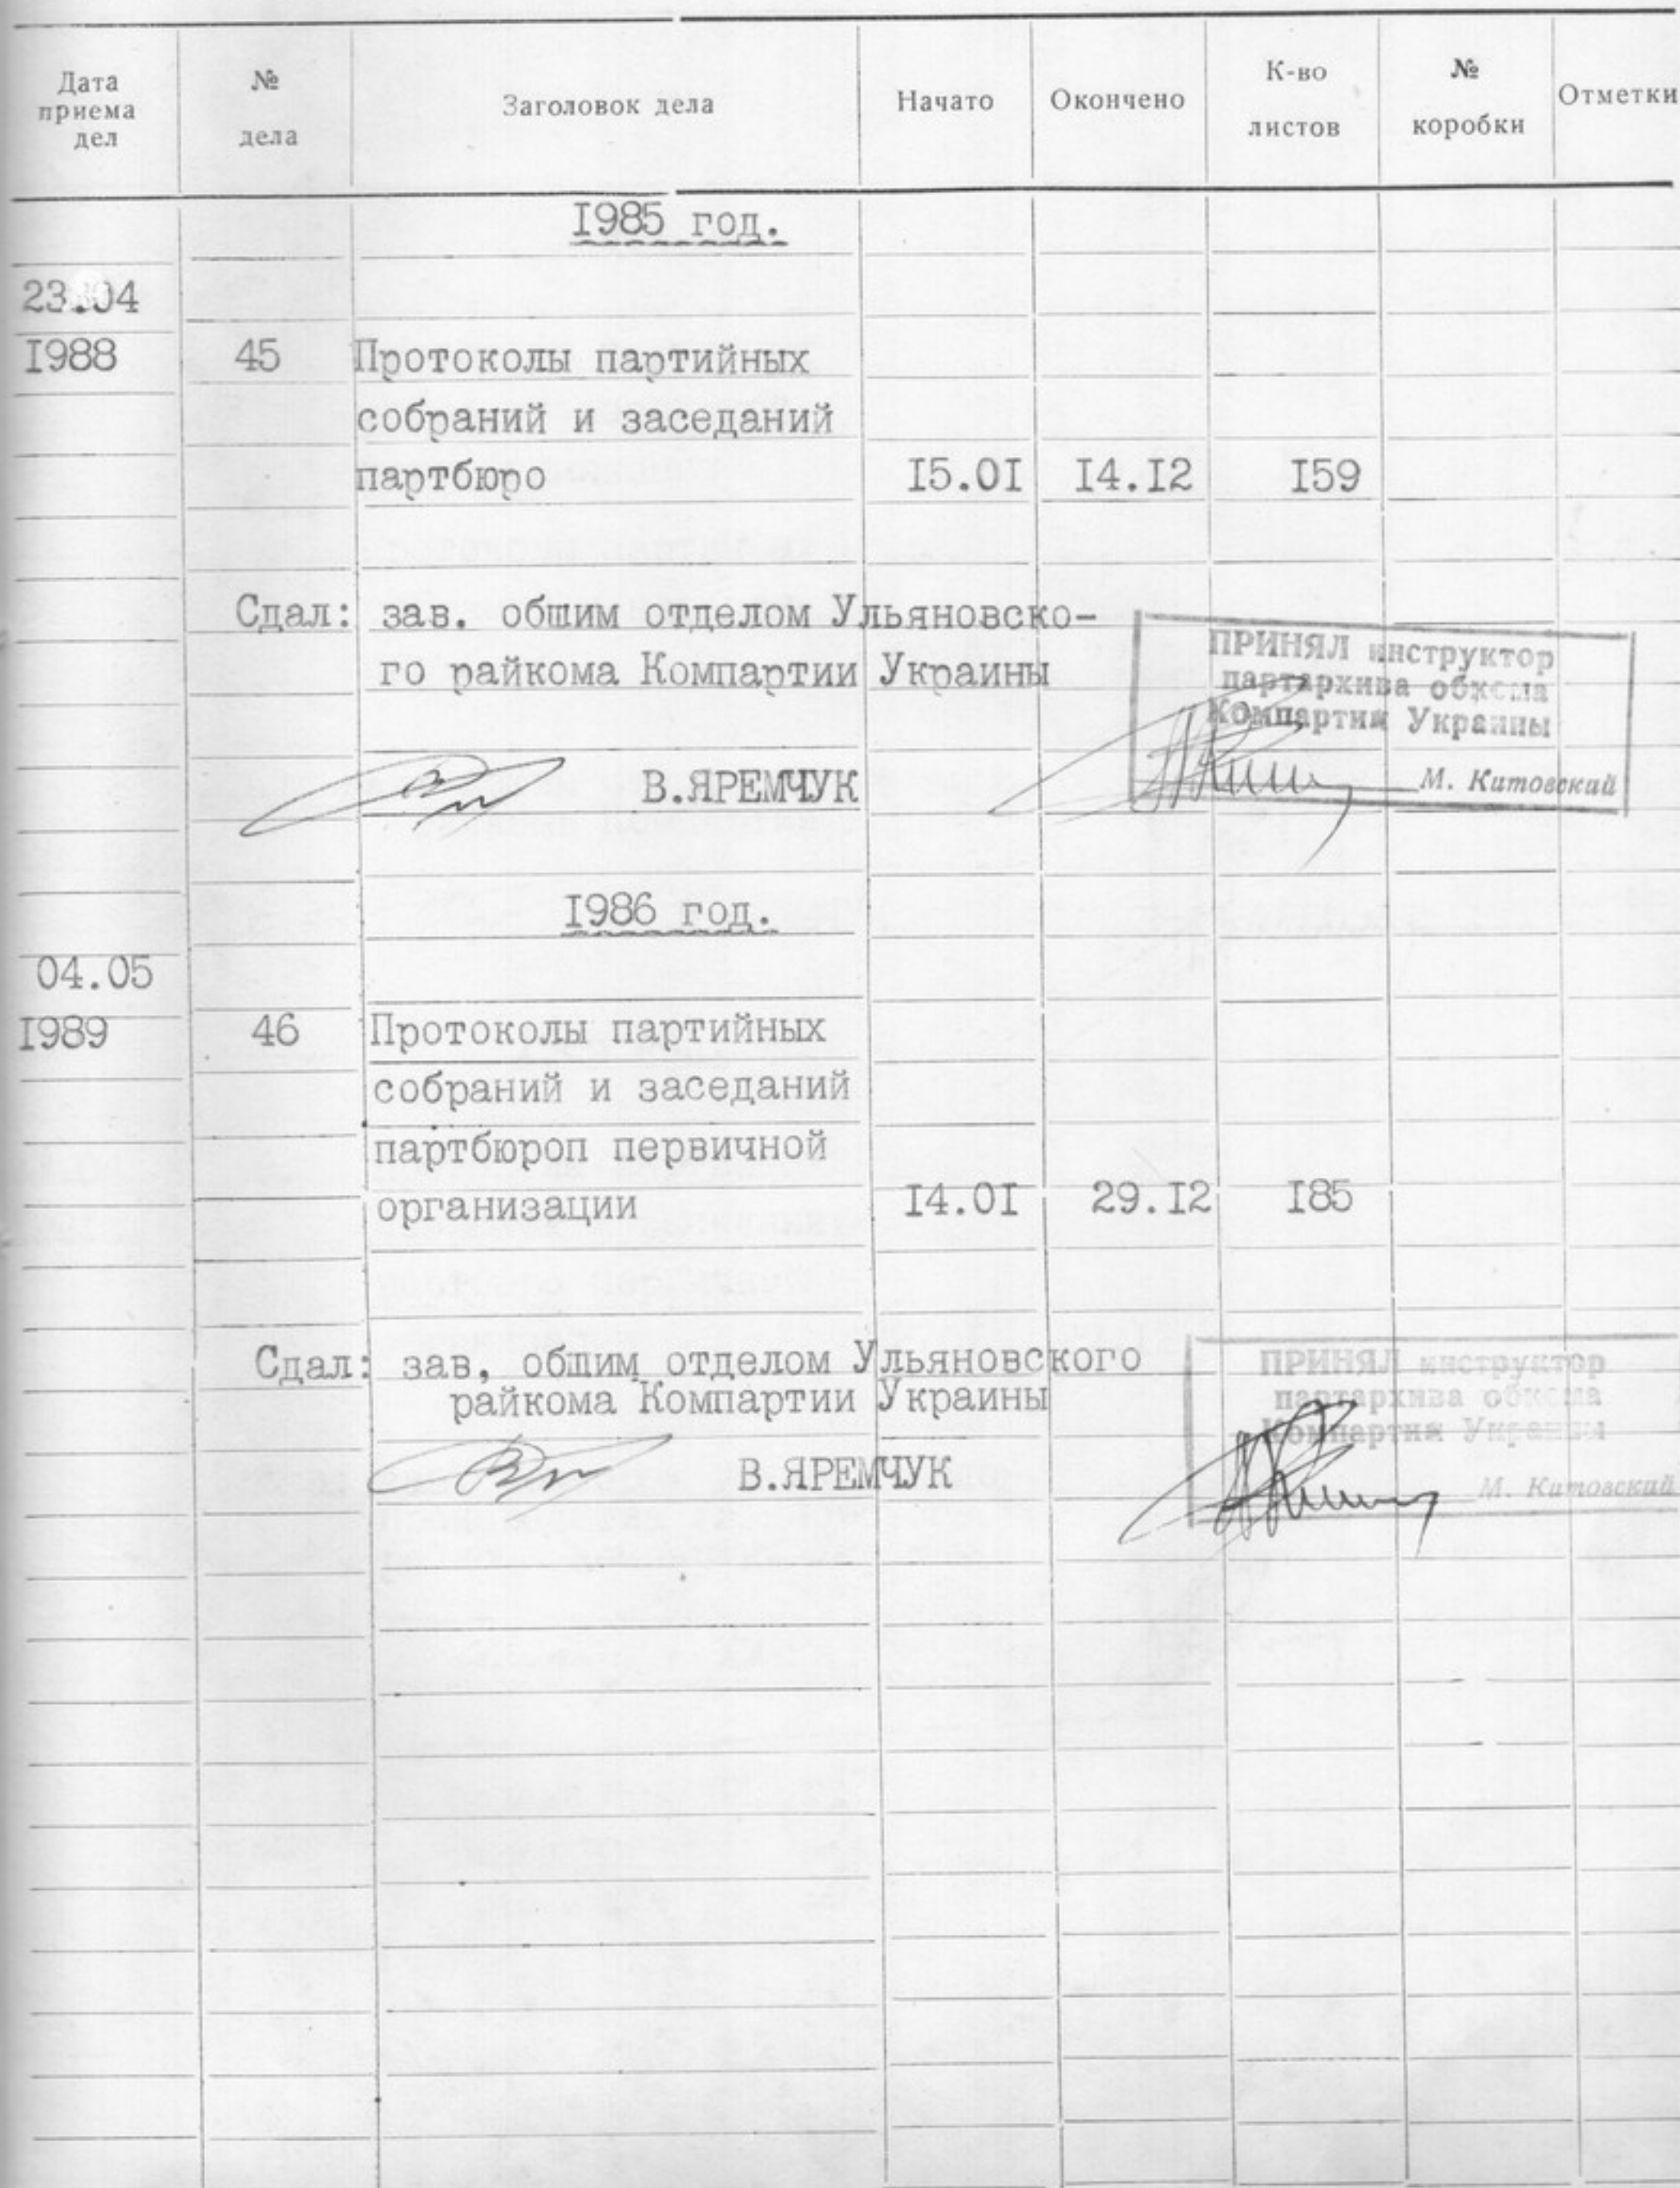 Дата приема дел № дела Заголовок дела Начато Окончено К-во листов № коробки Отметки
1985 год.
23.04
1988 45 Протоколы партийных
собраний и заседаний
партбюро 15.01 14.12 159
Сдал: зав. общим отделом Ульяновско-
го райкома Компартии Украины
В.ЯРЕМЧУК
ПРИНЯЛ инструктор
партархива обкома
Компартии Украины
М. Китовский
1986 год.
04.05
1989 46 Протоколы партийных
собраний и заседаний
партбюроп первичной
организации 14.01 29.12 185
Сдал: зав, общим отделом Ульяновского
райкома Компартии Украины
В.ЯРЕМЧУК
ПРИНЯЛ инструктор
партархива обкома
Компартии Украины
М. Китовский